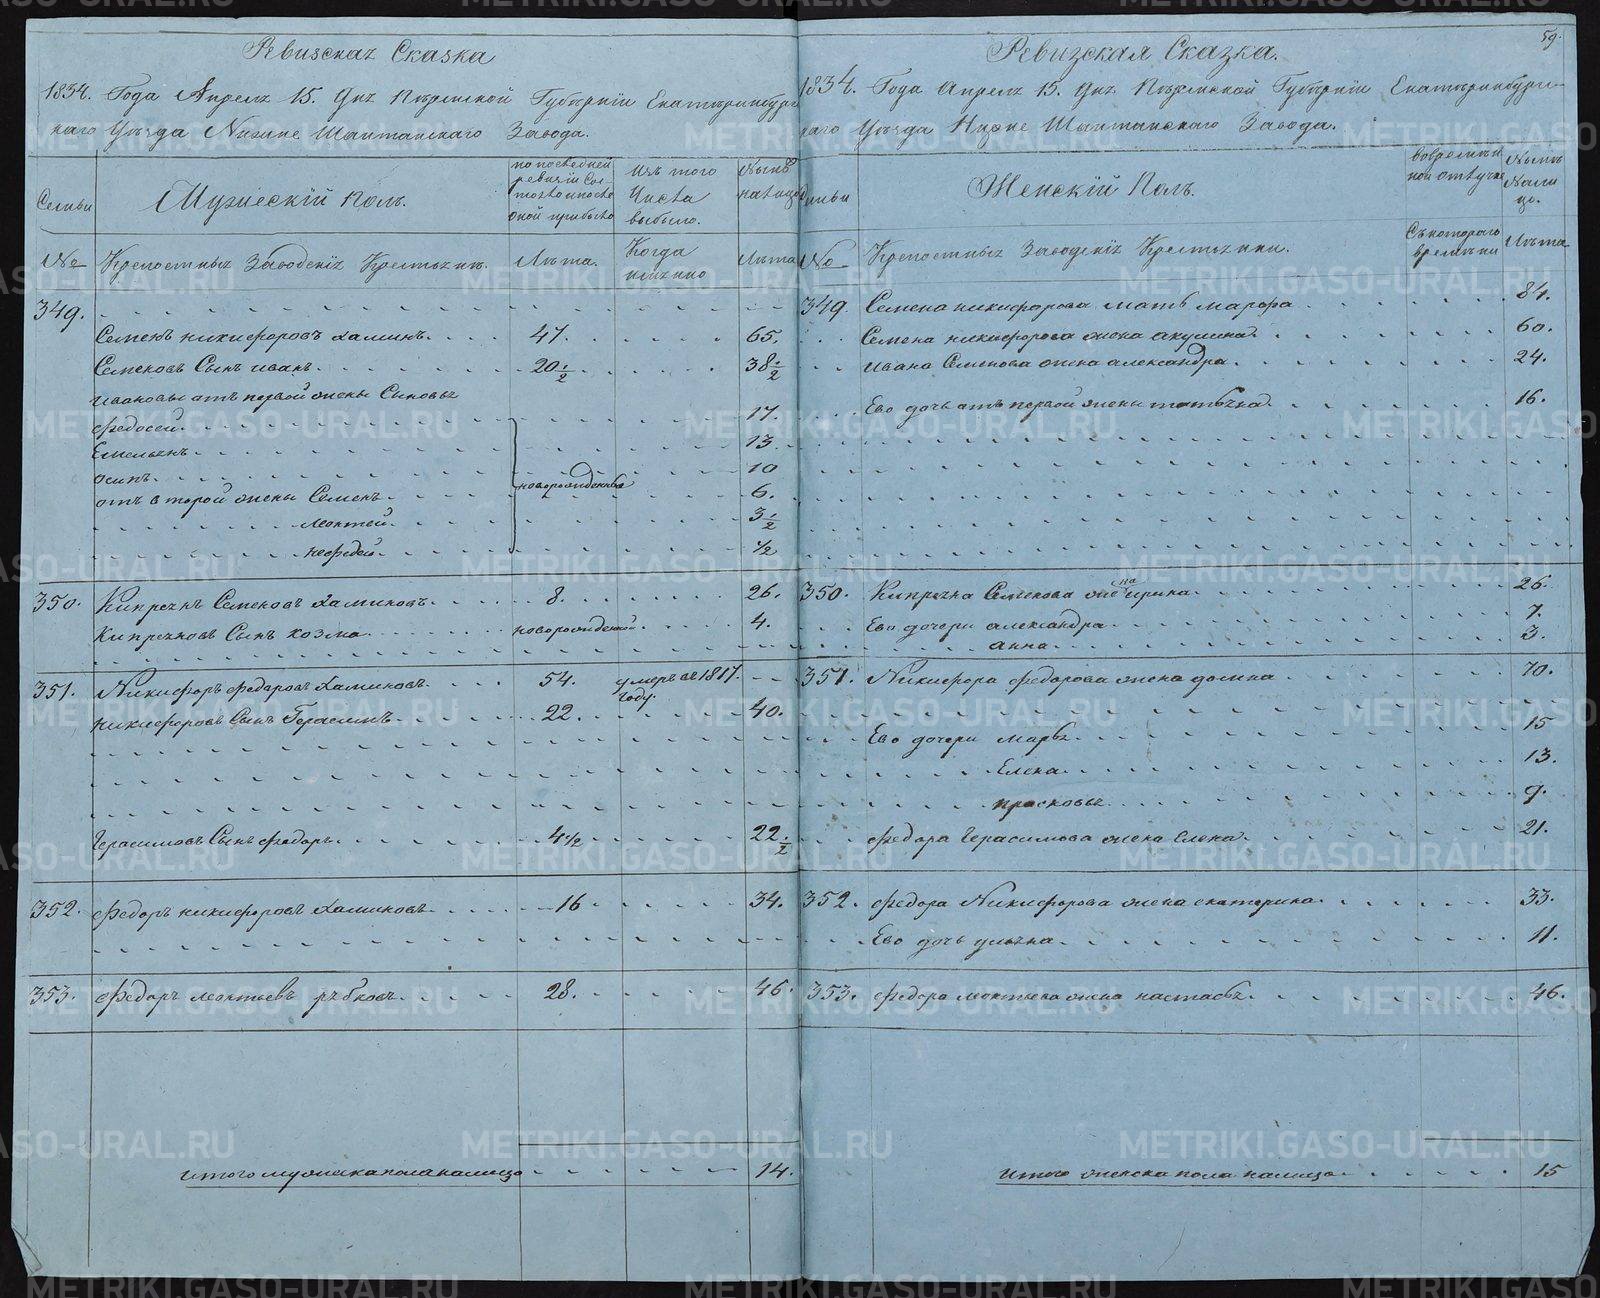 Ревизская Сказка
1834. Года Апреля 15. дня Пермской Губернии Екатеринбург
скаго Уезда Нижне Шайтанскаго Завода.
Семьи
Мужескій Полъ.
по последней
ревизіи Сос-
тояло и после
оной прибыло
Изъ того
Числа
выбыло.
Ныне
налицо
№
Крепостныхъ Заводскихъ Крестьянъ.
Лѣта.
Когда
имянно
Лѣта
349.
Семенъ никифоровъ хаминъ. 47. 65.
Семеновъ Сынъ иванъ. 20 1/2 38 1/2
ивановы отъ первой жены Сыновья
федосей. 17.
Емельянъ 13.
осипъ. новорожденные 10
отъ второй жены Семенъ. 6.
леонтей. 3 1/2
нефедей. 1/2
350. Кипреянъ Семеновъ Хаминовъ. 8. 26.
Кипреяновъ Сынъ козма. новорожденной. 4.
351. Никифоръ федоровъ Хаминовъ. 54. умеръ въ 1817.
году.
никифоровъ Сынъ Герасимъ. 22. 40.
Герасимовъ Сынъ федоръ. 4 1/2 22 1/2
352. федоръ никифоровъ Хаминовъ 16 34.
353. федоръ леонтьевъ рябковъ. 28. 46.
итого мужеска пола налицо 14.
59.
Ревизская Сказка.
1834. Года Апреля 15. дня Пермской Губернии Екатеринбург-
скаго Уезда Нижне Шайтанскаго Завода.
Семьи
Женскій Полъ.
во временной отлучке
Ныне
Нали
цо.
№
Крепостныхъ Заводскихъ Крестьянъ.
Съ котораго
времени
Лѣта
349. Семена никифорова мать марфа 84.
Семена никифорова жена акулина 60.
ивана Семенова жена александра. 24.
Ево дочь отъ первой жены татьяна. 16.
350. Кипреяна Семенова жена ирина. 26.
Ево дочери александра. 7.
анна. 3.
351. Никифора федорова жена домна 70.
Ево дочери марья. 15
Елена. 13.
прасковья. 9.
федора Герасимова жена Елена. 21.
352. федора Никифорова жена екатерина. 33.
Ево дочь ульяна. 11.
353. федора леонтьева жена настасья. 46.
Итого женска пола налицо 15
METRIKI.GASO-URAL.RU